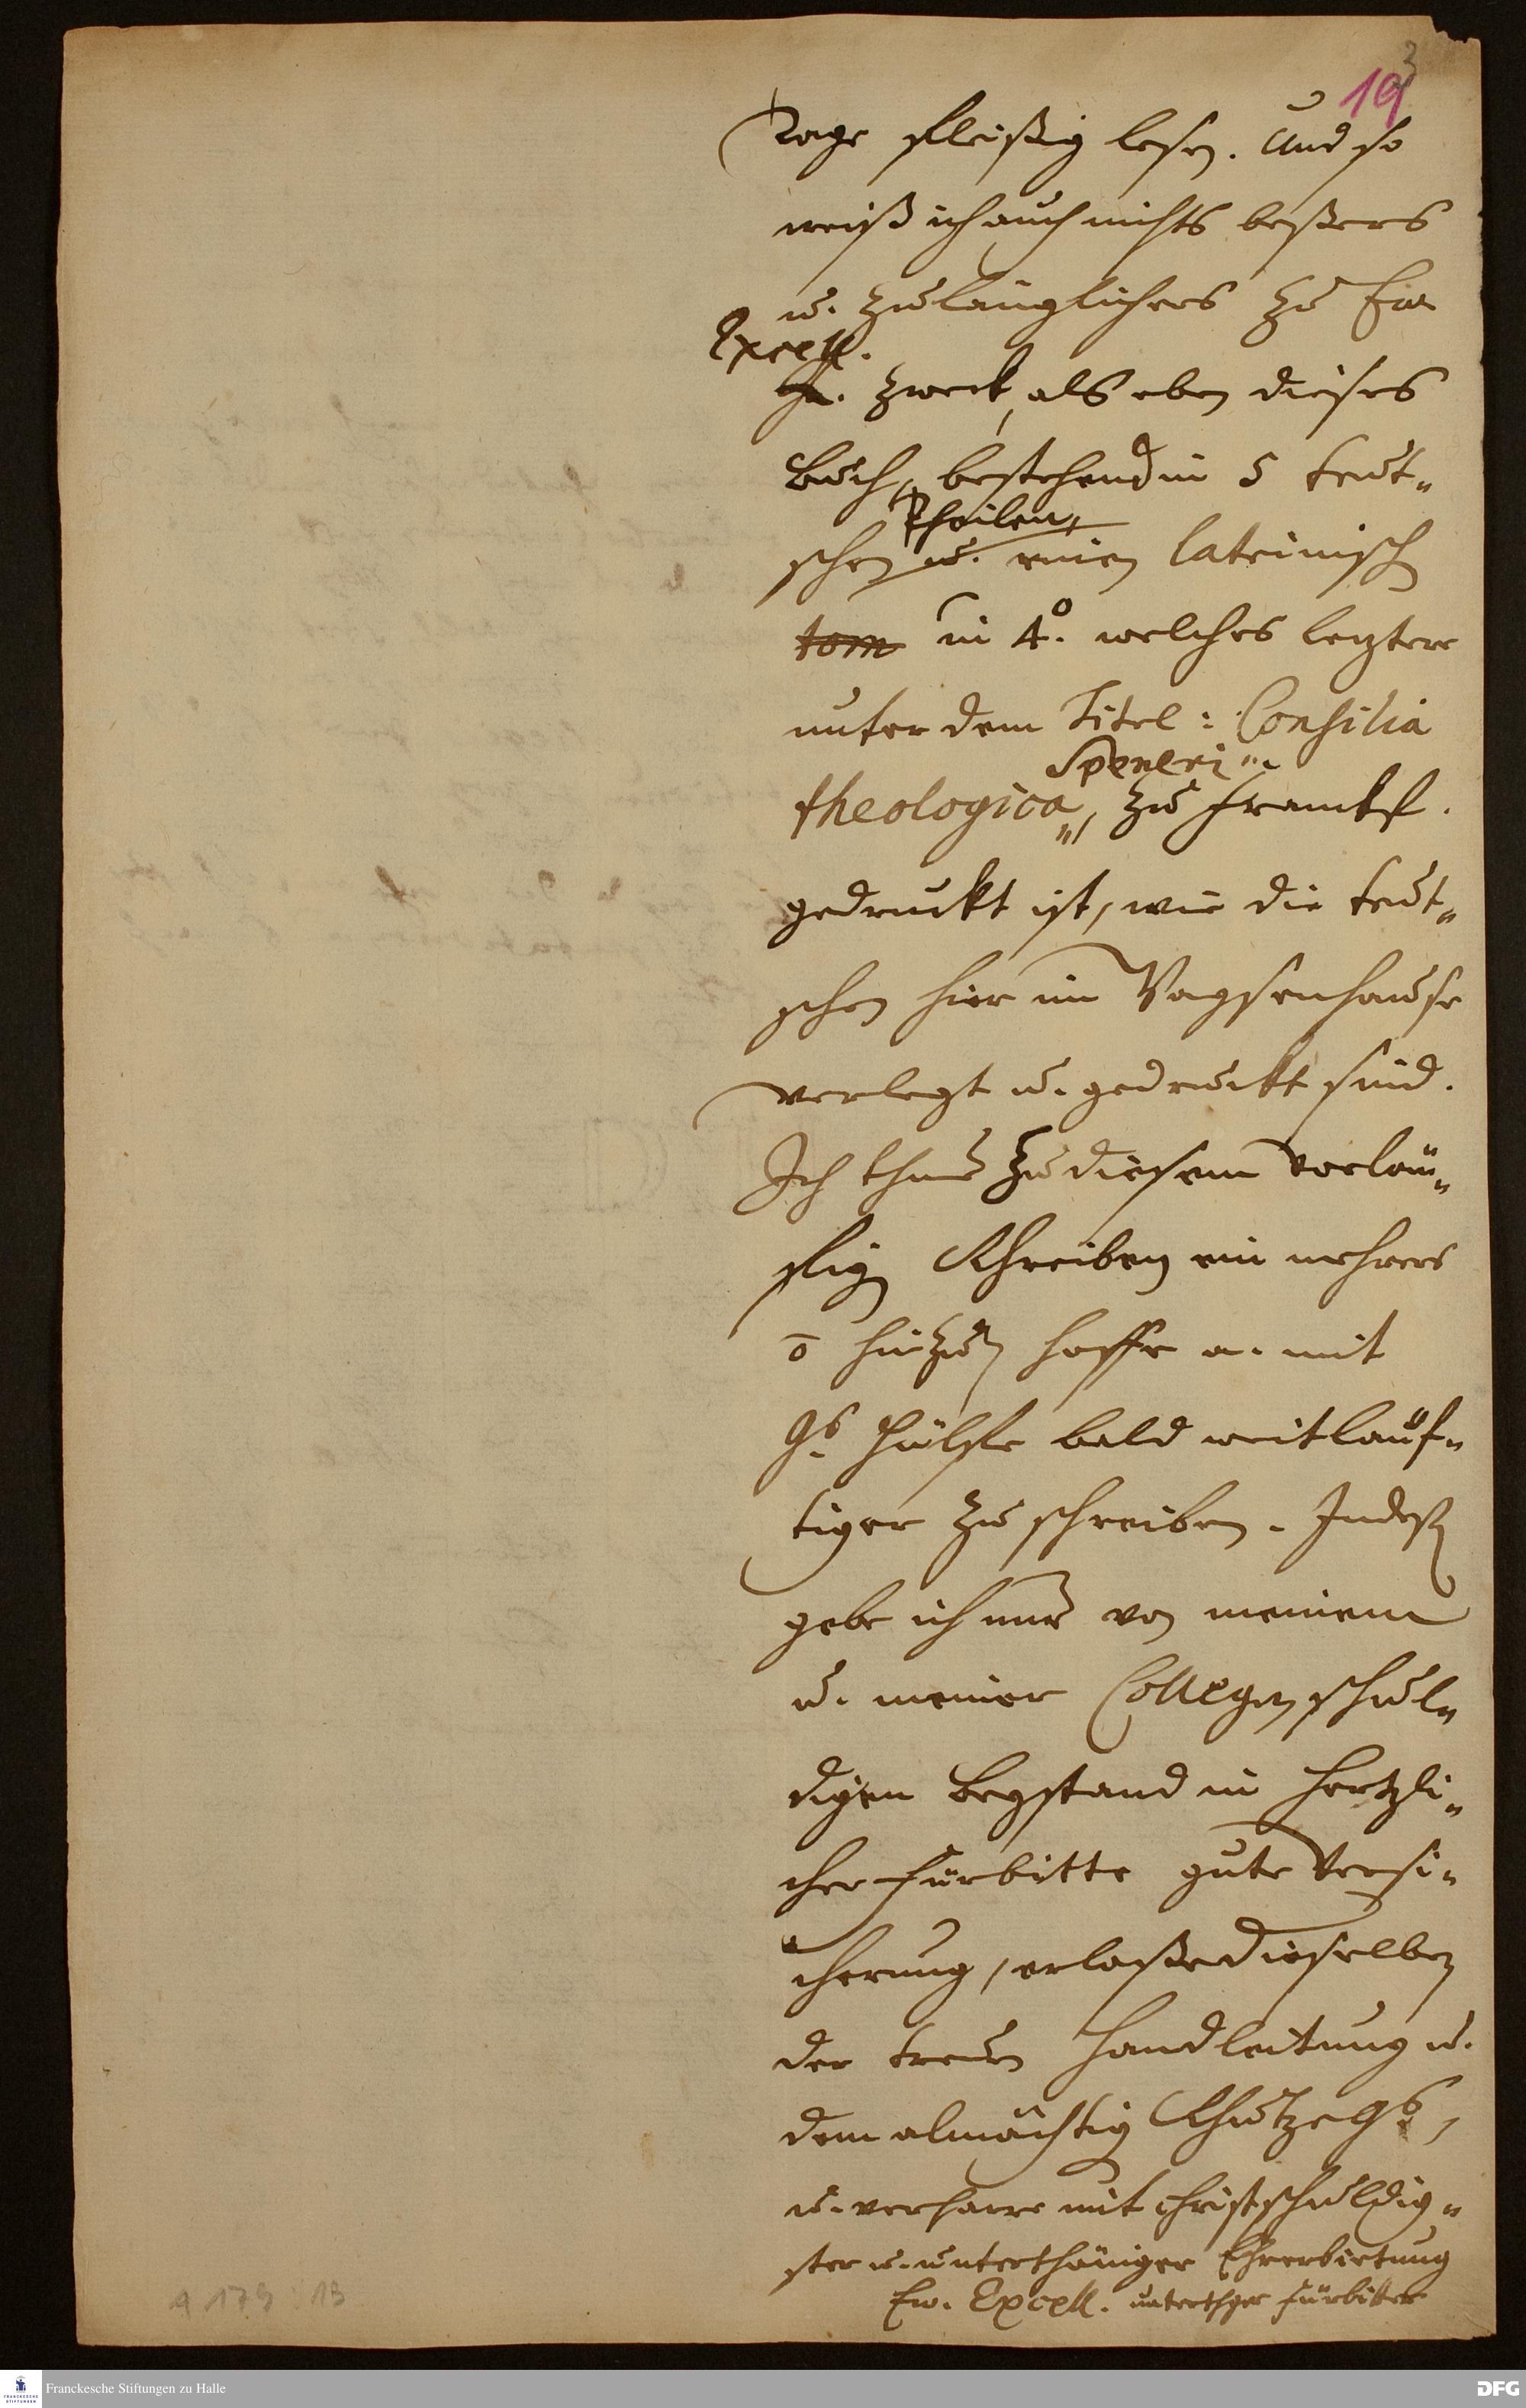 3
19
Tage fleißig lesen. Und so
weiß ich auch nichts beßers
u. zulänglichers zu Ew.
Excell.
Zweck, als eben dieses
Buch, bestehend in 5 teut-
Theilen,
schen u. einen lateinisch
tom in 4º. welches letztere
unter dem Titel: Consilia
Speneri
theologica, zu Franckf.
gedruckt ist, wie die teut-
schen hier im Waysenhause
verlegt u. gedruckt sind.
Ich thue zu diesem vorläu-
fig Schreiben ein mehrers
ō hinzu, hoffe a. mit
Gs. Hülfe bald weitläuf-
tiger zu schreiben. Indeß
gebe ich nur von meinem
u. meiner Collegen schul-
digen Beystand in hertzli-
cher Fürbitte gute Versi-
cherung, erlaße dieselben
der treuen Handleitung u.
dem almächtig Schutze Gs.,
u. verharre mit christschuldig-
ster u. unterthäniger Ehrerbietung
Ew. Excell. unterthger Fürbitter
A 179 : 13
Franckesche Stiftungen zu Halle
DFG